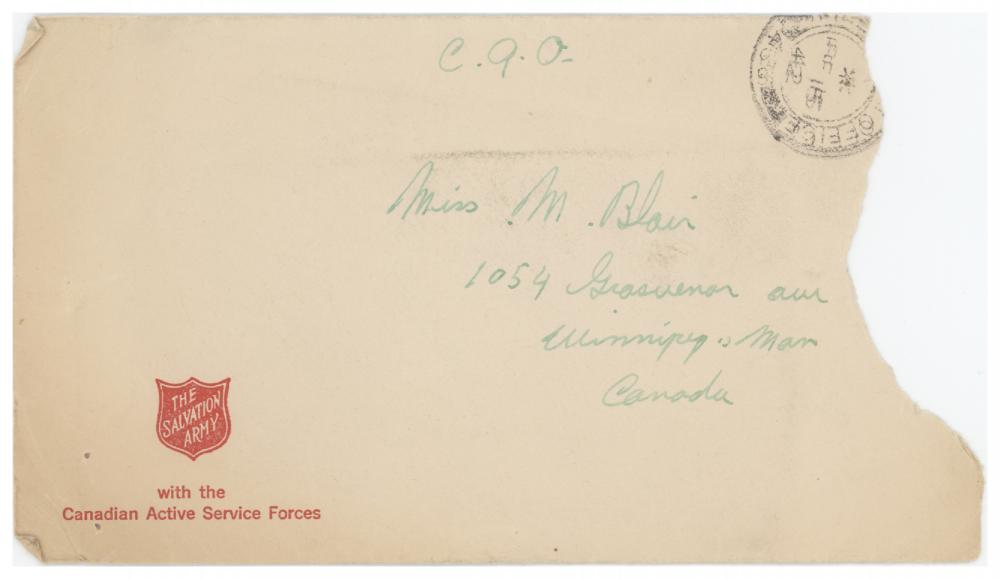 C.A.O.
OFFICE
16
42
Miss M. Blair
1054 Grosvenor ave
Winnipeg, Man
Canada
THE
SALVATION
ARMY
with the
Canadian Active Service Forces